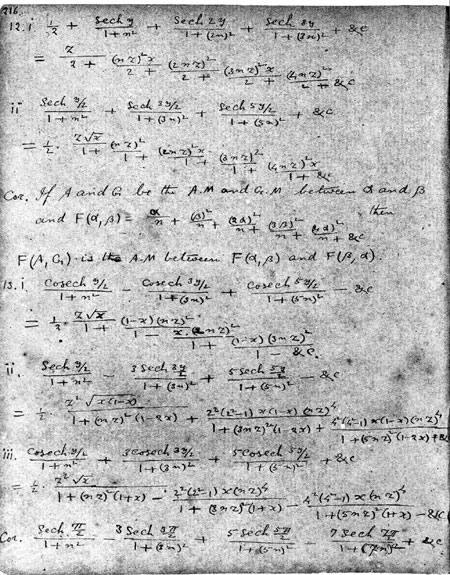 216
12. i 1/2 + Sech y/(1+n²) + Sech 2y/(1+(2n)²) + Sech 3y/(1+(3n)²) + &c
= z/2 + (nz)²x/2 + (2nz)²/2 + (3nz)²x/2 + (4nz)²/2 + &c
ii Sech y/2/(1+n²) + Sech 3y/2/(1+(3n)²) + Sech 5y/2/(1+(5n)²) + &c
= ½· z√x/1 + (nz)²/1 + (2nz)²x/1 + (3nz)²/1 + (4nz)²x/1 + &c
Cor. If A and G be the A.M and G.M between α and β
and F(α,β) = α/n + (β)²/n + (2α)²/n + (3β)²/n + (4α)²/n + &c then
F(A,G) is the A.M between F(α,β) and F(β,α).
13. i Cosech y/2/(1+n²) − Cosech 3y/2/(1+(3n)²) + Cosech 5y/2/(1+(5n)²) − &c
= ½· z√x/1 + (1−x)(nz)²/1 − x(2nz)²/1 + (1−x)(3nz)²/1 − &c.
ii. Sech y/2/(1+n²) − 3 Sech 3y/2/(1+(3n)²) + 5 Sech 5y/2/(1+(5n)²) − &c
= ½· z²√x(1−x)/1+(nz)²(1−2x) + 2²(2²−1)x(1−x)(nz)⁴/1+(3nz)²(1−2x) + 4²(4²−1)x(1−x)(nz)⁴/1+(5nz)²(1−2x) + &c
iii. Cosech y/2/(1+n²) + 3 cosech 3y/2/(1+(3n)²) + 5 Cosech 5y/2/(1+(5n)²) + &c
= ½· z²√x/1+(nz)²(1+x) − 2²(2²−1)x(nz)⁴/1+(3nz)²(1+x) − 4²(4²−1)x(nz)⁴/1+(5nz)²(1+x) − &c
Cor. Sech π/2/(1+n²) − 3 Sech 3π/2/(1+(3n)²) + 5 Sech 5π/2/(1+(5n)²) − 7 Sech 7π/2/(1+(7n)²) + &c